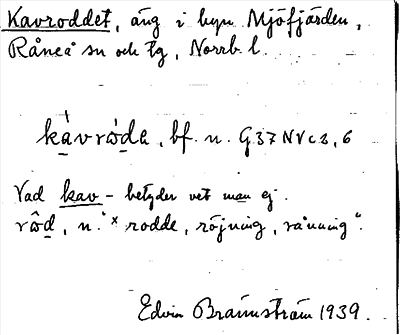 Kavroddet, äng i byn Mjöfjärden,
Råneå sn och tg, Norrb. l.
kàvròde, bf. n. G37 NV c 2, 6
Vad kav- betyder vet man ej.
rôd, n. "× rodde, röjning, rånning".
Edvin Brännström 1939.